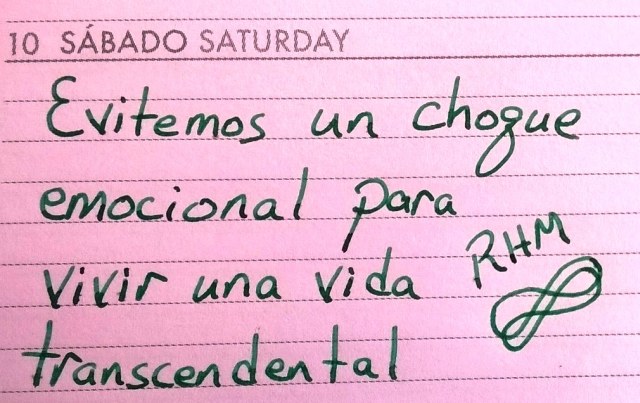 10 SÁBADO SATURDAY
Evitemos un choque
emocional para
vivir una vida RHM
transcendental